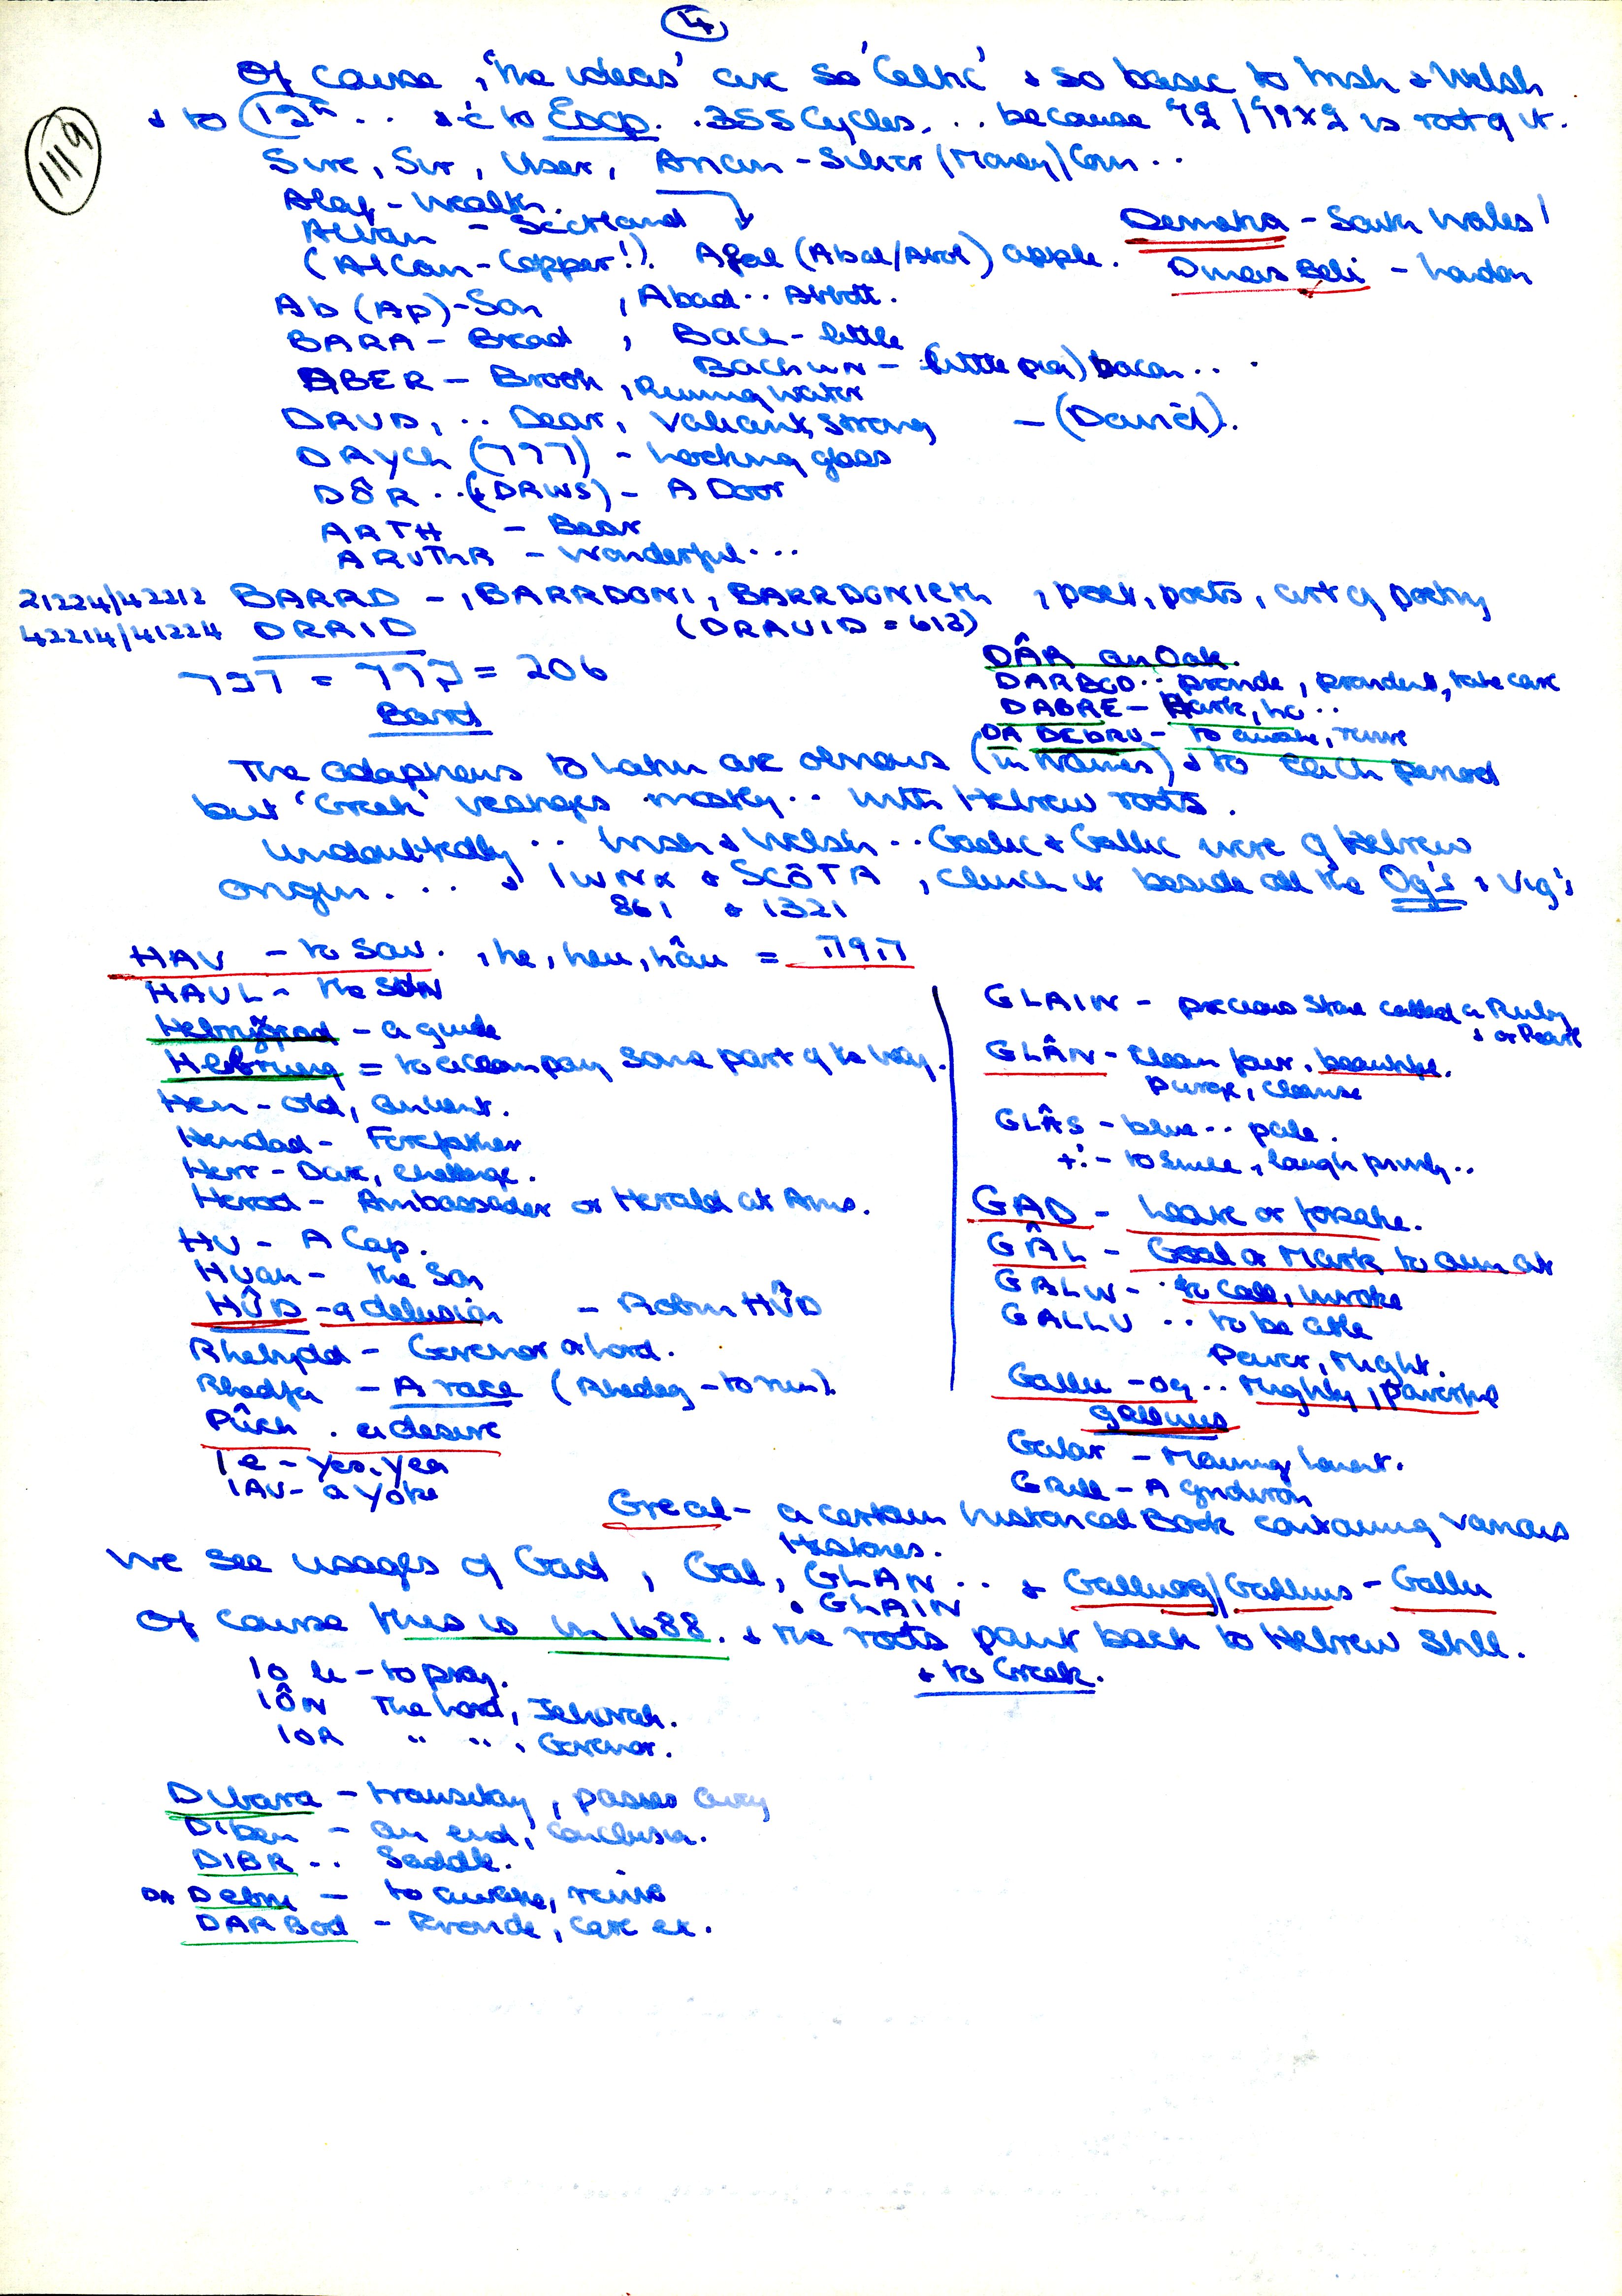 4
1119
Of course, 'the ideas' are so 'Celtic' & so basic to Irish & Welsh
& to 12th .. & to Escp. .355 Cycles, .. because is root of it.
Sure, Sur, User, Arian - Silver (Money) Coin ..
Alaf - Wealth.
Alban - Scotland
(Alcan - Copper!). Afal (Abal/Avol) apple.
Demetia - South Wales!
Dinas Beli - London
Ab (Ap) - Son , Abad .. Abbott.
BARA - Bread , Bach - little
Bachwn - (little pig) bacon ...
ABER - Brook, Running Water
DRUD, .. Dear, Valiant, Strong - (David).
DRYCH (ררר) - Looking glass
DÔR .. (& DRWS) - A Door
ARTH - Bear
ARUTHR - Wonderful ...
21224/42212 BARRD - , BARRDONI, BARRDONIETH , poet, poets, art of poetry
42214/41224 DRRID (DRAVID = 613)
= 206
Bard
DÂR an Oak.
DARBOD .. provide, provident, take care
DABRE - Hark, ho ..
DA DEBRU - to awake, revive
The adaptions to Latin are obvious (in Names) & to each period
but 'Greek' mostly .. with Hebrew roots.
Undoubtedly .. Irish & Welsh .. Gaelic & Gallic were of Hebrew
origin. ... & & SCÔTA, clinch it beside all the Og's & Vig's
861 & 1321
HAV - to Sow. , he, heu, hâu =
HAUL - the SUN
- a guide
Hebrwng = to accompany some part of the way.
Hen - old, ancient.
Hendad - Forefather
Herr - Dare, challenge.
Herod - Ambassador or Herald at Arms.
HU - A Cap.
Huan - the Son
HÛD - a delusion - Robin HÛD
Rhelydd - Governor or Lord.
Rhedfa - A race (Rhedeg - to run).
Pûch . a desire
Ie - yes, yea
IAU - a yoke
GLAIN - precious stone called a Ruby
& or Pearl
GLÂN - Clean, fair, beautiful.
Purge, cleanse
GLÂS - blue .. pale.
+: - to smile, laugh privily ..
GAD - Leave or forsake.
GÂL - Goal or Mark to aim at
GALW - to call, invoke
GALLU .. to be able
Power, Might.
Gallu - og .. Mighty, powerful
galluus
Galar - Mourning, lament.
GRILL - A gridiron
Greal - a certain historical Book containing various
Histories.
We see usages of Gad, Gal, GLAN .. & Galluog/Gallius - Gallu
& GLAIN
Of course this is in 1688. & the roots point back to Hebrew still.
& to Greek.
Io li - to pray.
IÔN The Lord, Jehovah.
IOR " " , Governor.
Dibara - transitory, passes away
Diben - an end, conclusion.
DIBR .. Saddle.
DA Debru - to awake, revive
DARBod - Provide, care etc.